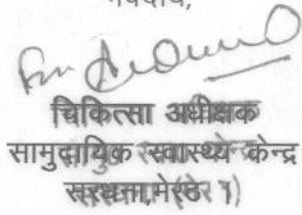 भवदीय,
चिकित्सा अधीक्षक
सामुदायिक स्वास्थ्य केन्द्र
सरधना, मेरठ